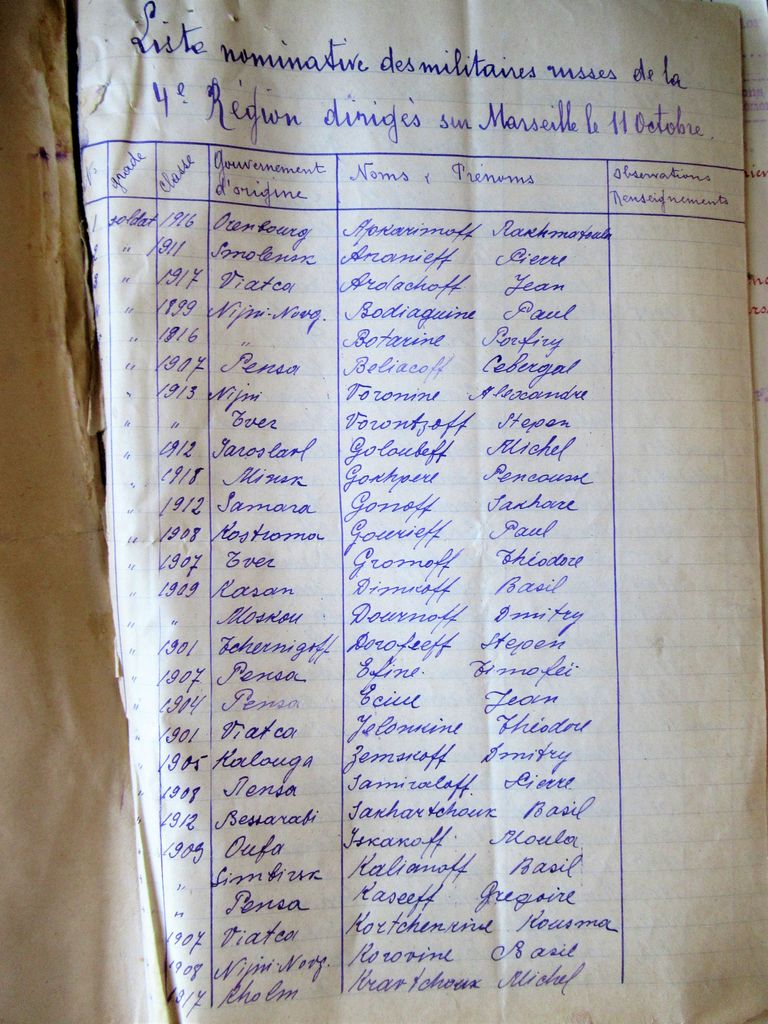 Liste nominative des militaires russes de la
4e Région dirigés sur Marseille le 11 Octobre.
Nos grade Classe Gouvernement d'origine Noms & Prénoms Observations Renseignements
1 soldat 1916 Orenbourg Apkarimoff Rakhmatoula
2 " 1911 Smolensk Ananieff Pierre
3 " 1917 Viatca Ardachoff Jean
" 1899 Nijni-Novg. Bodiaguine Paul
" 1816 " Botarine Porfiry
" 1907 Pensa Beliacoff Cebergal
" 1913 Nijni Voronine Alexandre
" " Tver Vorontzoff Stepen
" 1912 Jaroslavl Goloubeff Michel
" 1918 Minsk Gokhpere Pencousse
" 1912 Samara Gonoff Sakhare
" 1908 Kostroma Gourieff Paul
" 1907 Tver Gromoff Théodore
" 1909 Kasan Dimkoff Basil
" " Moskou Dournoff Dmitry
" 1901 Tchernigoff Dorofeeff Stepen
" 1907 Pensa Efine. Timofeï
" 1904 Pensa Jean
" 1901 Viatca Jelonkine Théodore
" 1905 Kalouga Zemskoff Dmitry
1908 Pensa Samiraloff. Pierre
1912 Bessarabi Sakhartchouk Basil
1909 Oufa Iskakoff Moula
" Simbirsk Kalianoff Basil
" Pensa Kaseeff Gregoire
1907 Viatca Kortchenkine Kousma
1908 Nijni-Novg. Korovine Basil
1917 Kholm Kravtchouk Michel